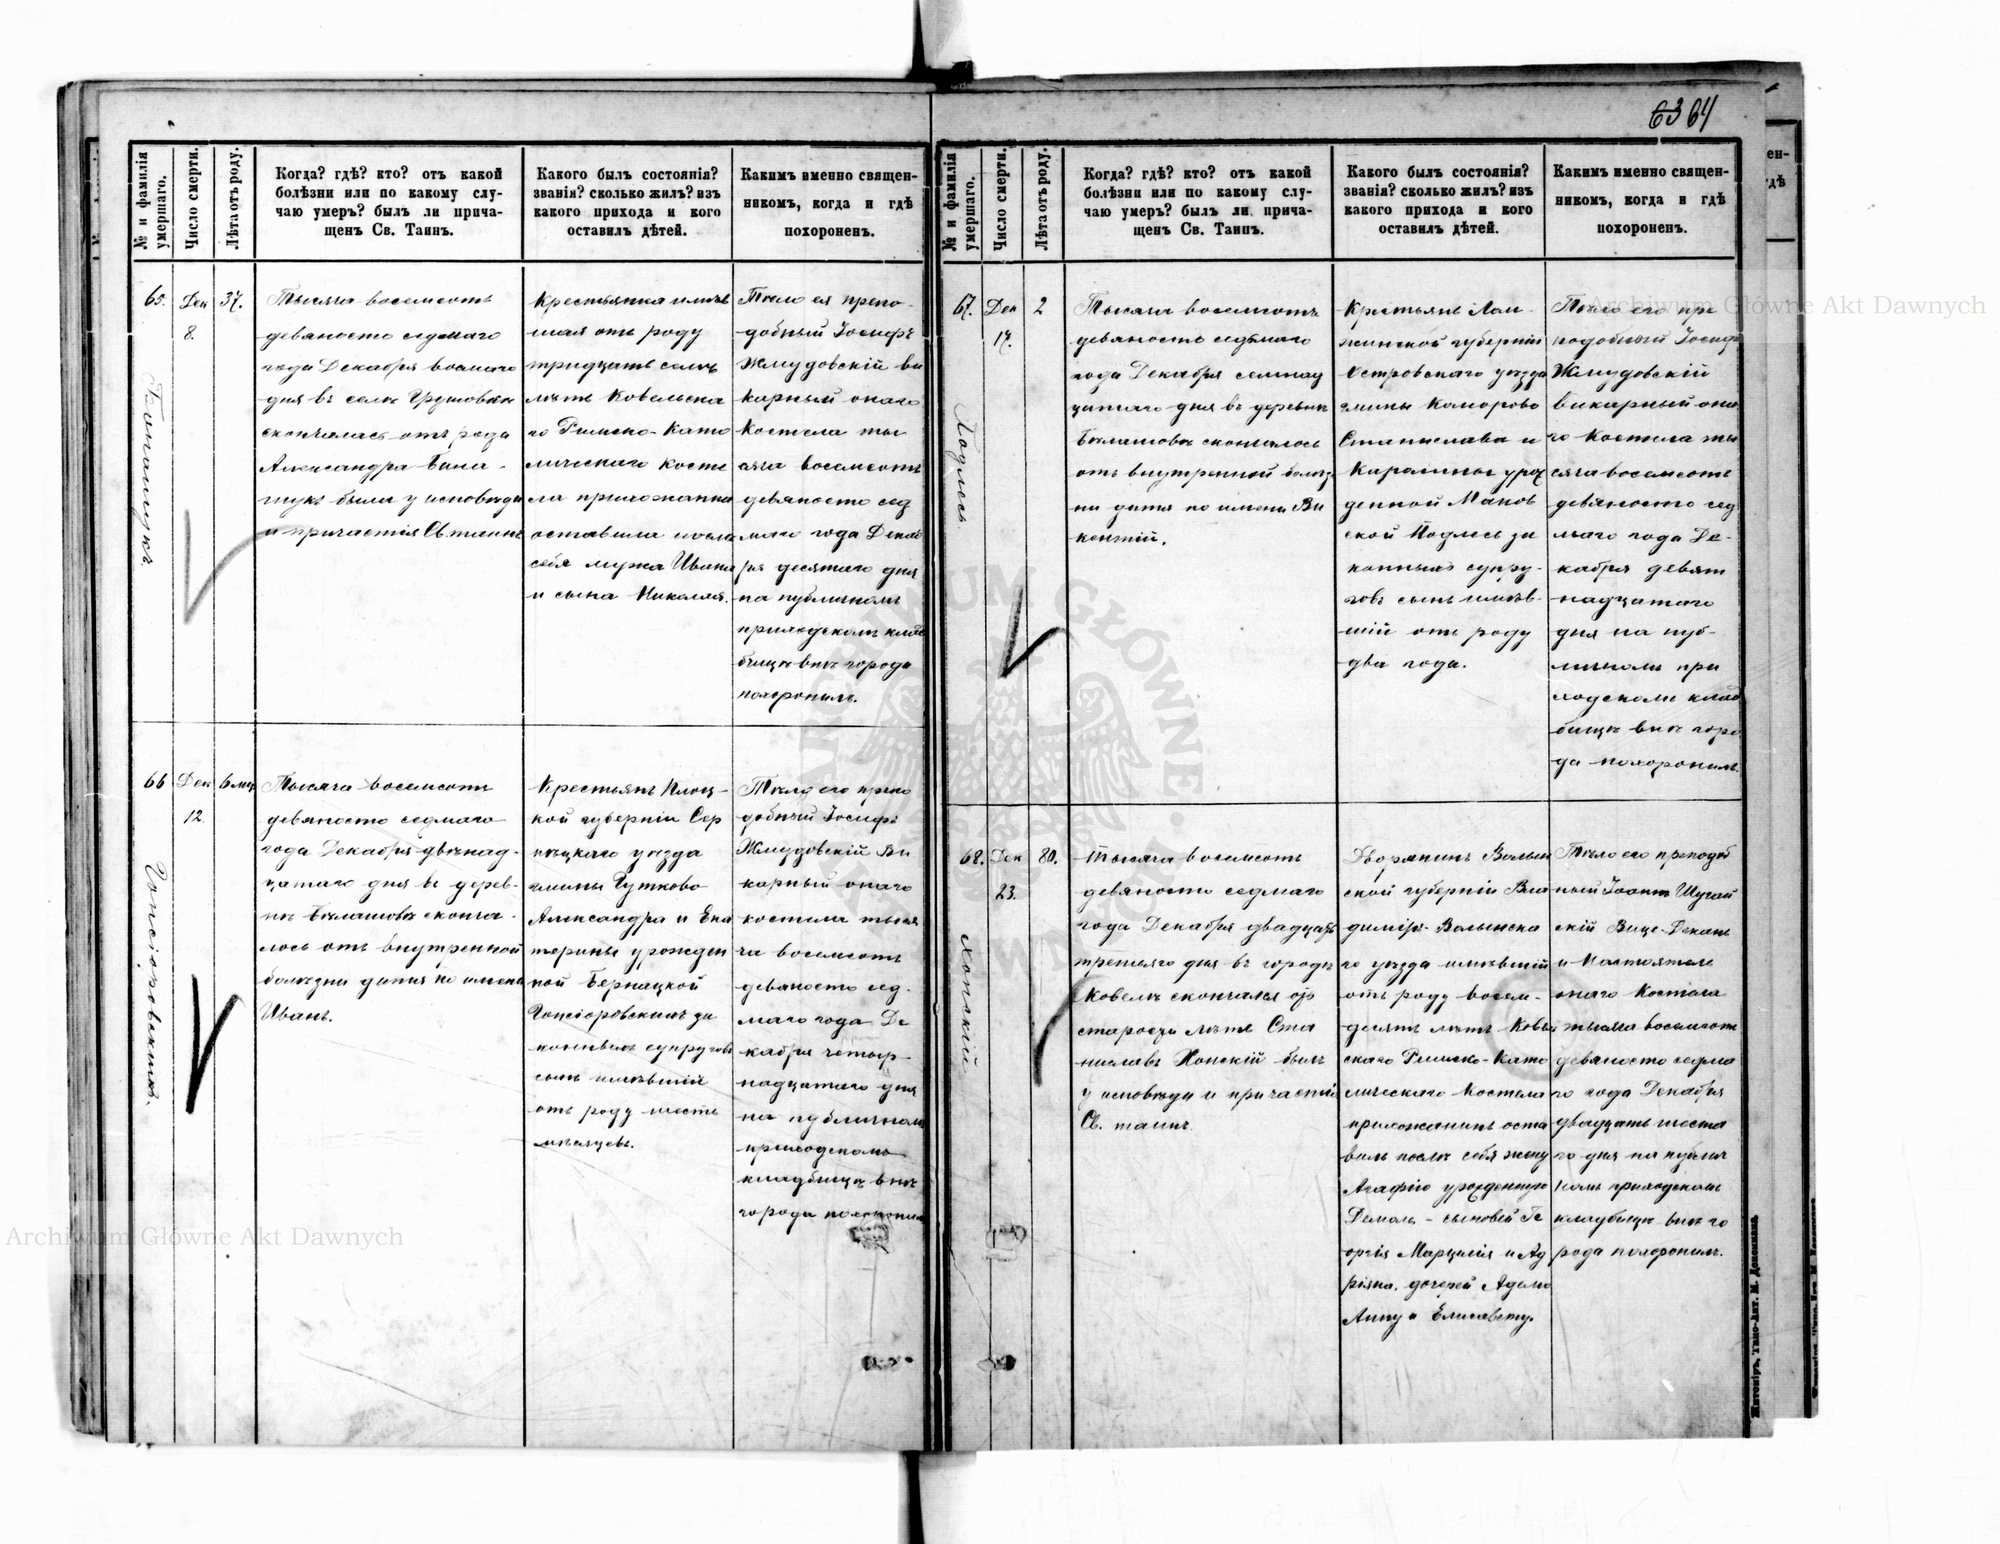 63 64
№ и фамилія умершаго.
Число смерти.
Лѣта отъ роду.
Когда? гдѣ? кто? отъ какой
болѣзни или по какому слу-
чаю умеръ? былъ ли прича-
щенъ Св. Таинъ.
Какого былъ состоянія?
званія? сколько жилъ? изъ
какого прихода и кого
оставилъ дѣтей.
Какимъ именно священ-
никомъ, когда и гдѣ
похороненъ.
65.
Дек
8.
37.
Тысяча восемсотъ
девяносто седмаго
года Декабря восмаго
дня въ селѣ
скончалась отъ рода
Александра
была у исповѣди
и причастія Св. таинъ
Крестьянка имѣв
шая отъ роду
тридцать семь
лѣтъ Ковельска
го Римско-Като
лическаго косте
ла прихожанка
оставила послѣ
себя мужа Ивана
и сына Николая.
Тѣло ея препо-
добный Іосифъ
Жмудовскій ви
карный онаго
Костела ты
сяча восемсотъ
девяносто сед
маго года Декаб
ря десятаго дня
на публичномъ
приходскомъ клад
бищѣ внѣ города
похоронилъ.
66
Дек
12.
6 мц
Гонсіоровскихъ.
Тысяча восемсотъ
девяносто седмаго
года Декабря двѣнад-
цатаго дня въ дерев-
нѣ Бѣлашовѣ сконча-
лось отъ внутренной
болѣзни дитя по имени
Иванъ.
Крестьянъ Плоц-
кой губерніи Сер
пецкаго уѣзда
гмины Гутково
Александра и Ека
терины урожден
ной Бернацкой
Гонсіоровскихъ за
конныхъ супруговъ
сынъ имѣвшій
отъ роду шесть
мѣсяцевъ.
Тѣло его препо
добный Іосифъ
Жмудовскій Ви
карный онаго
костела тыся
ча восемсотъ
девяносто сед-
маго года Де
кабря четыр-
надцатаго дня
на публичномъ
приходскомъ
кладбищѣ внѣ
города похоронилъ
№ и фамилія умершаго.
Число смерти.
Лѣта отъ роду.
Когда? гдѣ? кто? отъ какой
болѣзни или по какому слу-
чаю умеръ? былъ ли прича-
щенъ Св. Таинъ.
Какого былъ состоянія?
званія? сколько жилъ? изъ
какого прихода и кого
оставилъ дѣтей.
Какимъ именно священ-
никомъ, когда и гдѣ
похороненъ.
67.
Дек
17.
2
Подлесь
Тысяча восемсотъ
девяносто седмаго
года Декабря семнад
цатаго дня въ деревнѣ
Бѣлашовѣ скончалось
отъ внутренной болѣз-
ни дитя по имени Ви
кентій.
Крестьянъ Лом-
жинской губерніи
Островскаго уѣзда
гмины Коморово
Станислава и
Каролины урож
денной Маков
ской Подлесь за
конныхъ супру-
говъ сынъ имѣв-
шій отъ роду
два года.
Тѣло его пре
подобный Іосифъ
Жмудовскій
викарный она
го Костела ты
сяча восемсотъ
девяносто сед
маго года Де-
кабря девят
надцатаго
дня на пуб-
личномъ при
ходскомъ клад
бищѣ внѣ горо
да похоронилъ.
68.
Дек
23.
80.
Хонскій
Тысяча восемсотъ
девяносто седмаго
года Декабря двадцать
третьяго дня въ городѣ
Ковелѣ скончался отъ
старости лѣтъ Ста
ниславъ Хонскій былъ
у исповѣди и причастія
Св. таинъ.
Дворянинъ Волын
ской губерніи Вла
диміръ-Волынска
го уѣзда имѣвшій
отъ роду восем-
десятъ лѣтъ Ковель
скаго Римско-Като
лическаго Костела
прихожанинъ оста
вилъ послѣ себя жену
Агафію урожденную
сыновей Ге
оргія Марцилія и Ад
ріяна, дочерей
Анну и Елисавету.
Тѣло его преподоб
ный Іоаннъ
скій Вице-Деканъ
и Настоятель
онаго Костела
тысяча восемсотъ
девяносто седма
го года Декабря
двадцать шеста
го дня на публич
номъ приходскомъ
кладбищѣ внѣ го
рода похоронилъ.
Житоміръ, Типо-Лит. М. Дененмана
Archiwum Główne Akt Dawnych
Archiwum Główne Akt Dawnych